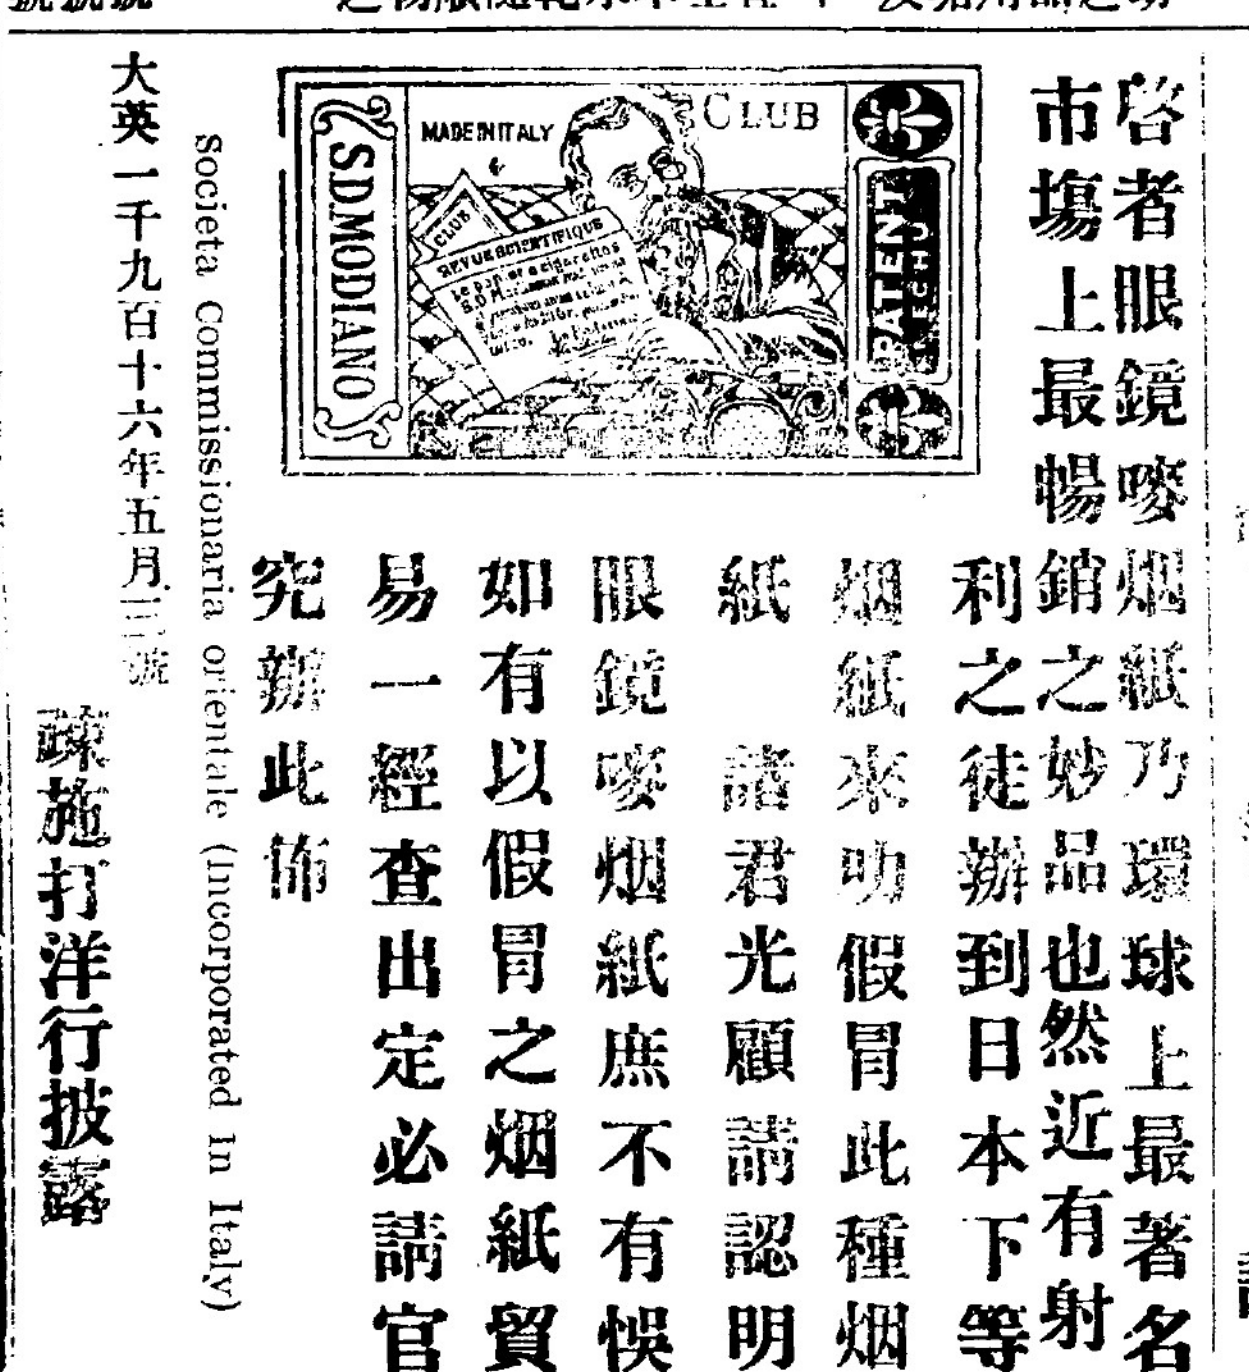 啓者眼鏡嘜烟紙乃環球上最著名
市塲上最暢銷之妙品也然近有射
利之徒辦到日本下等
烟紙來叻假冒此種烟
紙 諸君光顧請認明
眼鏡嘜烟紙庶不有悞
如有以假冒之烟紙貿
易一經查出定必請官
究辦此佈
CLUB
MADE IN ITALY
S.D.MODIANO
PATENT
CLUB
REVUE SCIENTIFIQUE
Le papier a cigarettes
Societa Commissionaria orientale (Incorporated In Italy)
大英一千九百十六年五月三號
疎施打洋行披露